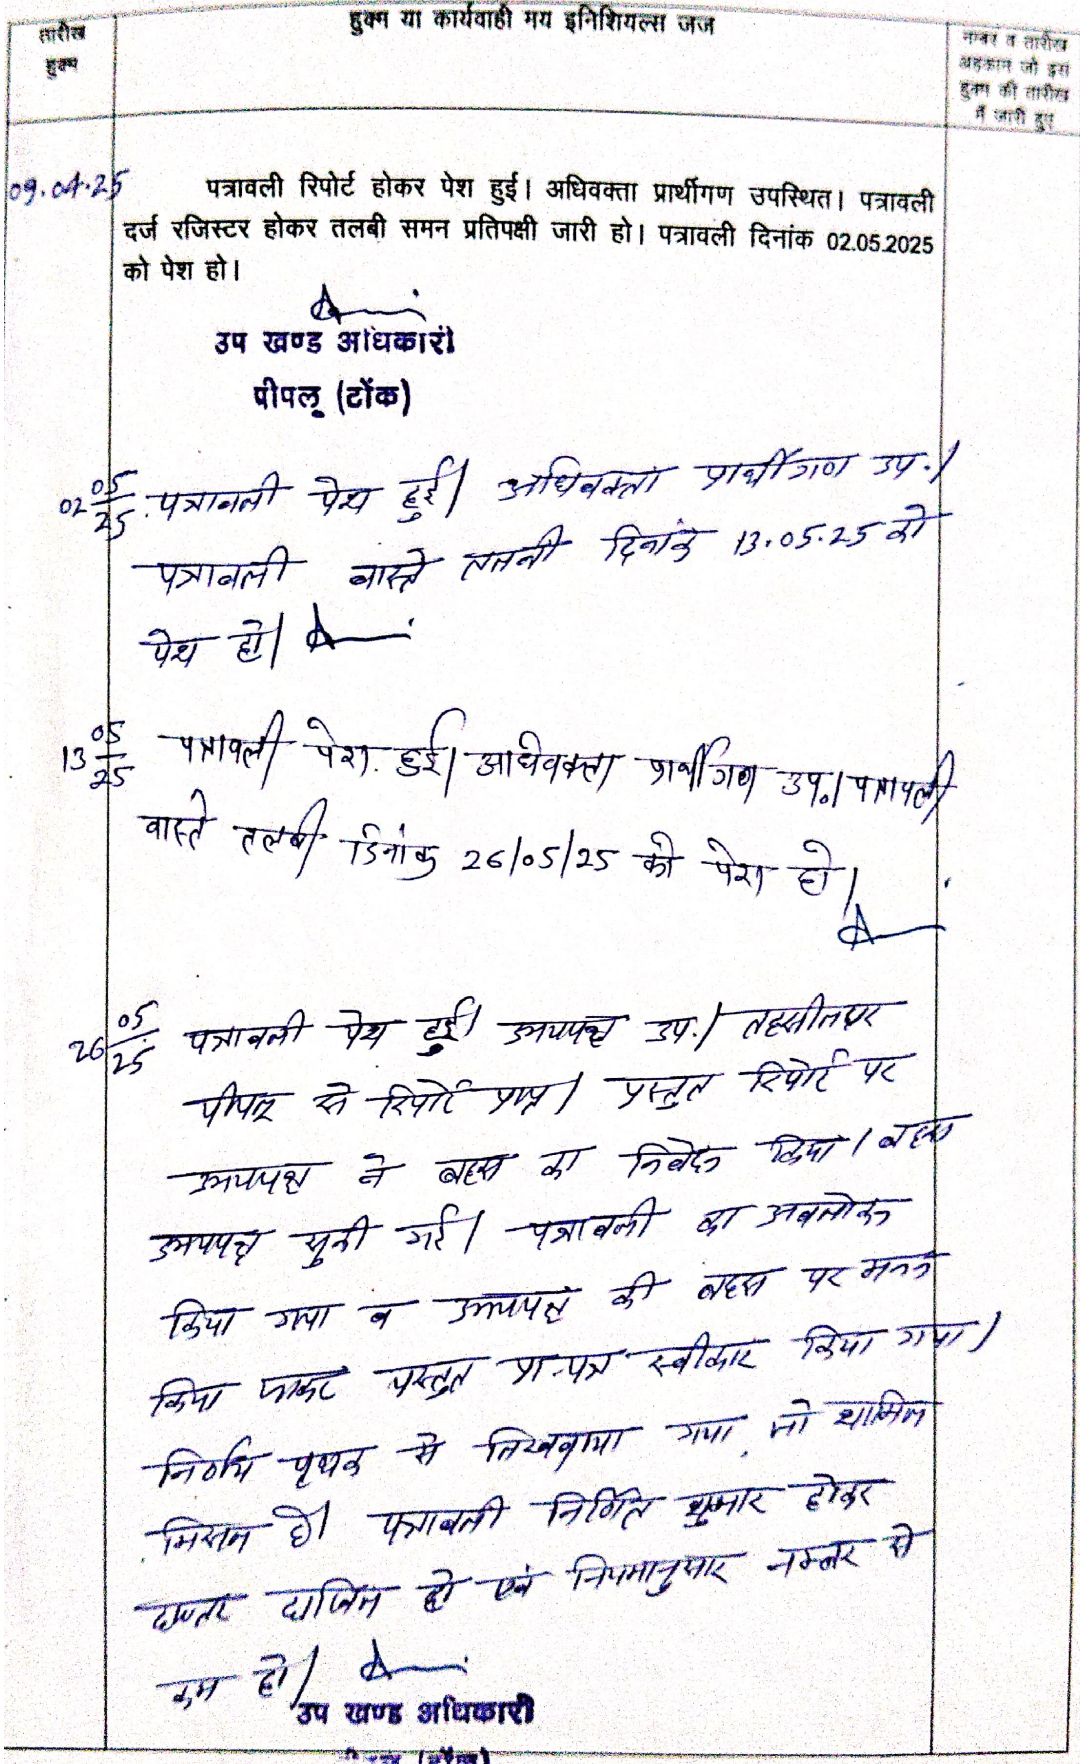 तारीख
हुक्म
हुक्म या कार्यवाही मय इनिशियल्स जज
नम्बर व तारीख
अहकाम जो इस
हुक्म की तारीख
में जारी हुए
09.04.25
पत्रावली रिपोर्ट होकर पेश हुई। अधिवक्ता प्रार्थीगण उपस्थित। पत्रावली
दर्ज रजिस्टर होकर तलबी समन प्रतिपक्षी जारी हो। पत्रावली दिनांक 02.05.2025
को पेश हो।
उप खण्ड अधिकारी
पीपलू (टोंक)
02 05/25 पत्रावली पेश हुई। अधिवक्ता प्रार्थीगण उप.।
पत्रावली वास्ते तलबी दिनांक 13.05.25 को
पेश हो।
13 05/25 पत्रावली पेश हुई। अधिवक्ता प्रार्थीगण उप०। पत्रावली
वास्ते तलबी दिनांक 26/05/25 को पेश हो।
26 05/25 पत्रावली पेश हुई। उभयपक्ष उप.। तहसीलदार
पीपलू से रिपोर्ट प्राप्त। प्रस्तुत रिपोर्ट पर
उभयपक्ष ने बहस का निवेदन किया। बहस
उभयपक्ष सुनी गई। पत्रावली का अवलोकन
किया गया व उभयपक्ष की बहस पर मनन
किया जाकर प्रस्तुत प्रा.पत्र स्वीकार किया गया।
निर्णय पृथक से लिखवाया गया जो शामिल
मिसल है। पत्रावली निर्णित शुमार होकर
दफ्तर दाखिल हो एवं नियमानुसार नम्बर से
कम हो।
उप खण्ड अधिकारी